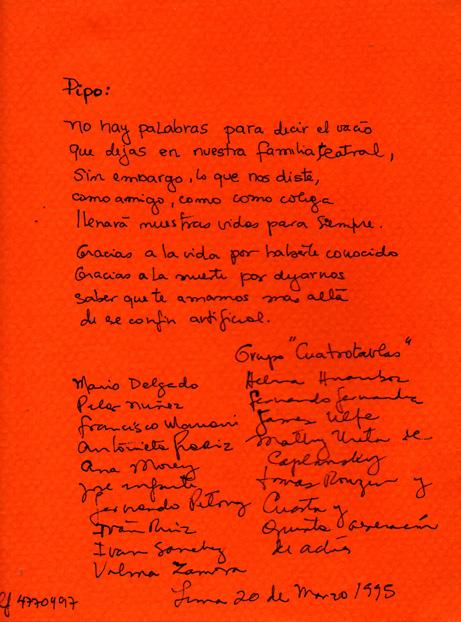 Pipo:
No hay palabras para decir el vacío
que dejas en nuestra familia teatral,
Sin embargo, lo que nos diste,
como amigo, como como colega
llenará nuestras vidas para siempre.
Gracias a la vida por haberte conocido
Gracias a la muerte por dejarnos
saber que te amamos mas allá
de ese confín artificial.
Grupo "Cuatrotablas"
Mario Delgado Helena Huambos
Pilar Núñez Fernando Fernández
Francisco Mamani James
Antonieta Mathy de
Ana Morey Caplansky
José Infante Tomas y
Fernando Cuarta y
Iván Ruiz Quinta Generación
Ivan Sanchez de
Vilma Zamora
Lima 20 de Marzo 1995
4770497